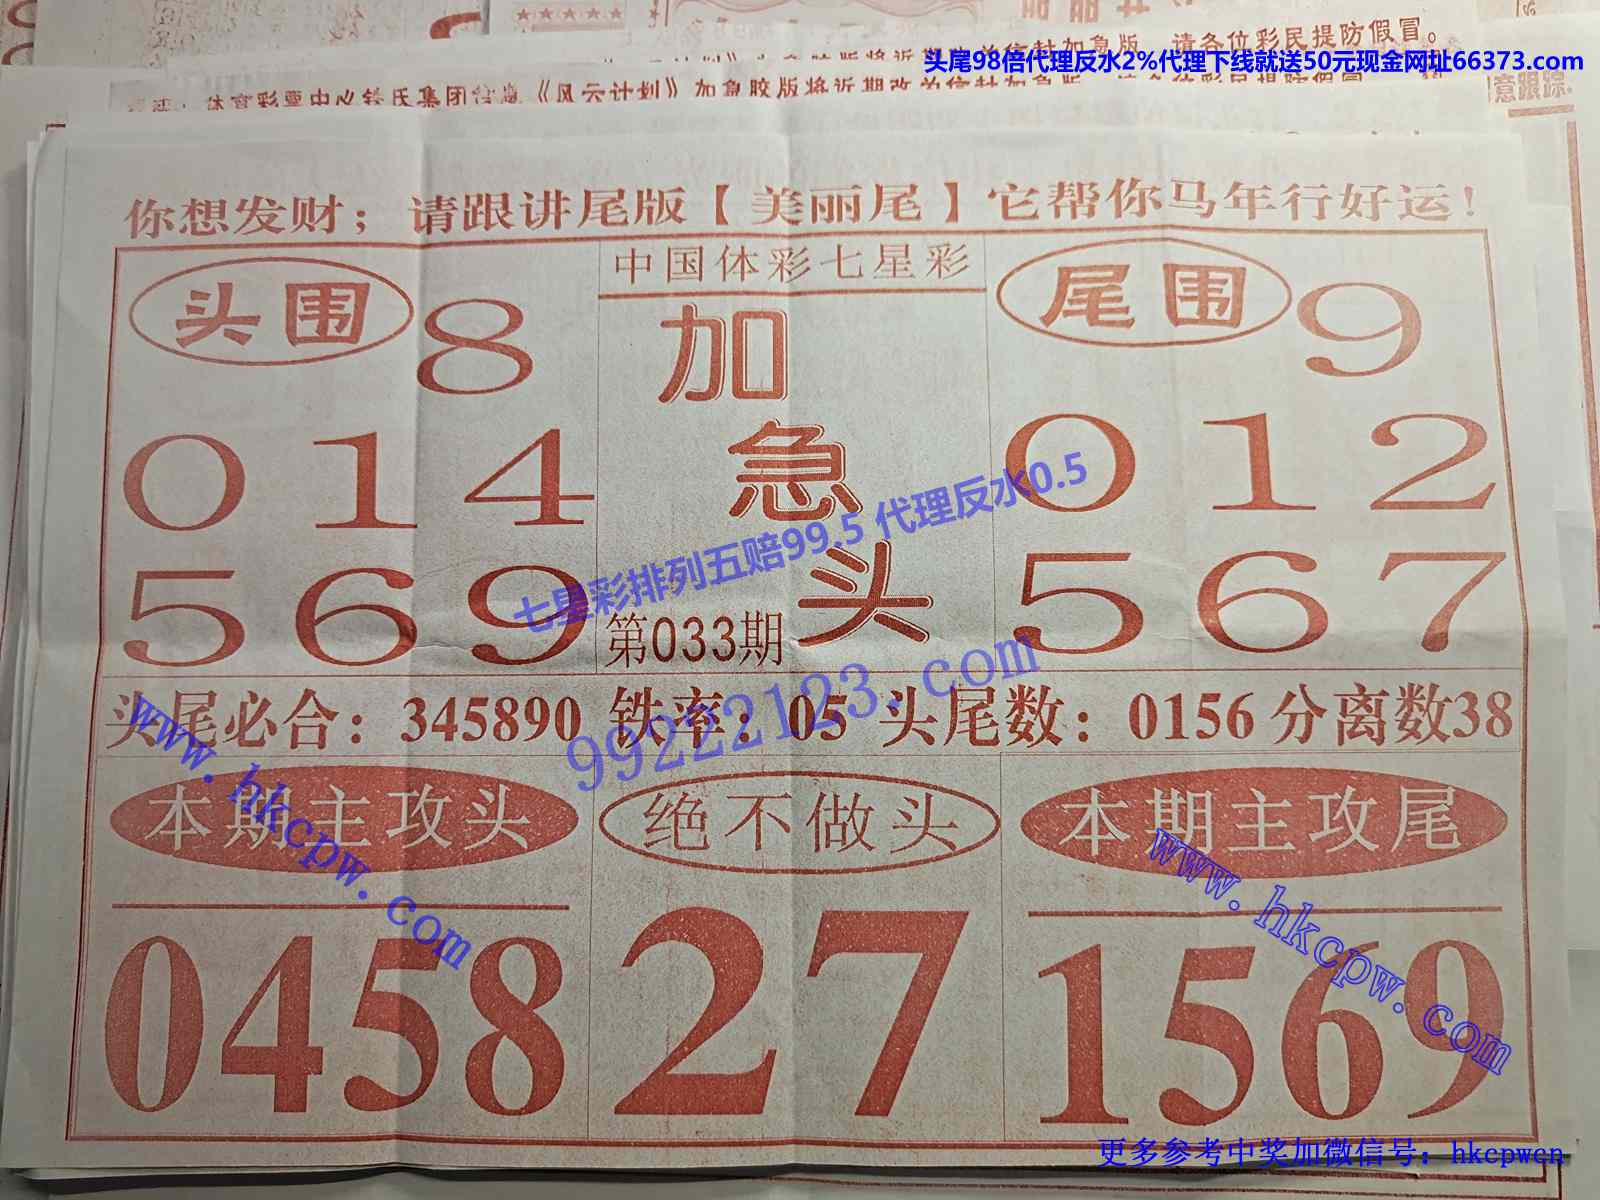 请各位彩民提防假冒。
头尾98倍代理反水2%代理下线就送50元现金网址66373.com
体育彩票中心 氏集团 《风云计划》加急胶版将近期改为信封加急版
意跟踪
你想发财；请跟讲尾版【美丽尾】它帮你马年行好运！
头围 8
中国体彩七星彩
尾围 9
加
急
头
0 1 4
0 1 2
5 6 9
5 6 7
七星彩排列五赔99.5 代理反水0.5
第033期
99222123.com
头尾必合：345890 铁率：05 头尾数：0156 分离数38
www.hkcpw.com
本期主攻头
绝不做头
本期主攻尾
www.hkcpw.com
0458
27
1569
更多参考中奖加微信号：hkcpwcn